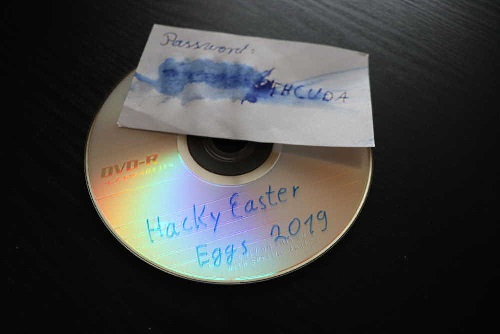 Password:
THCUDA
DVD-R
Hacky Easter
Eggs 2019